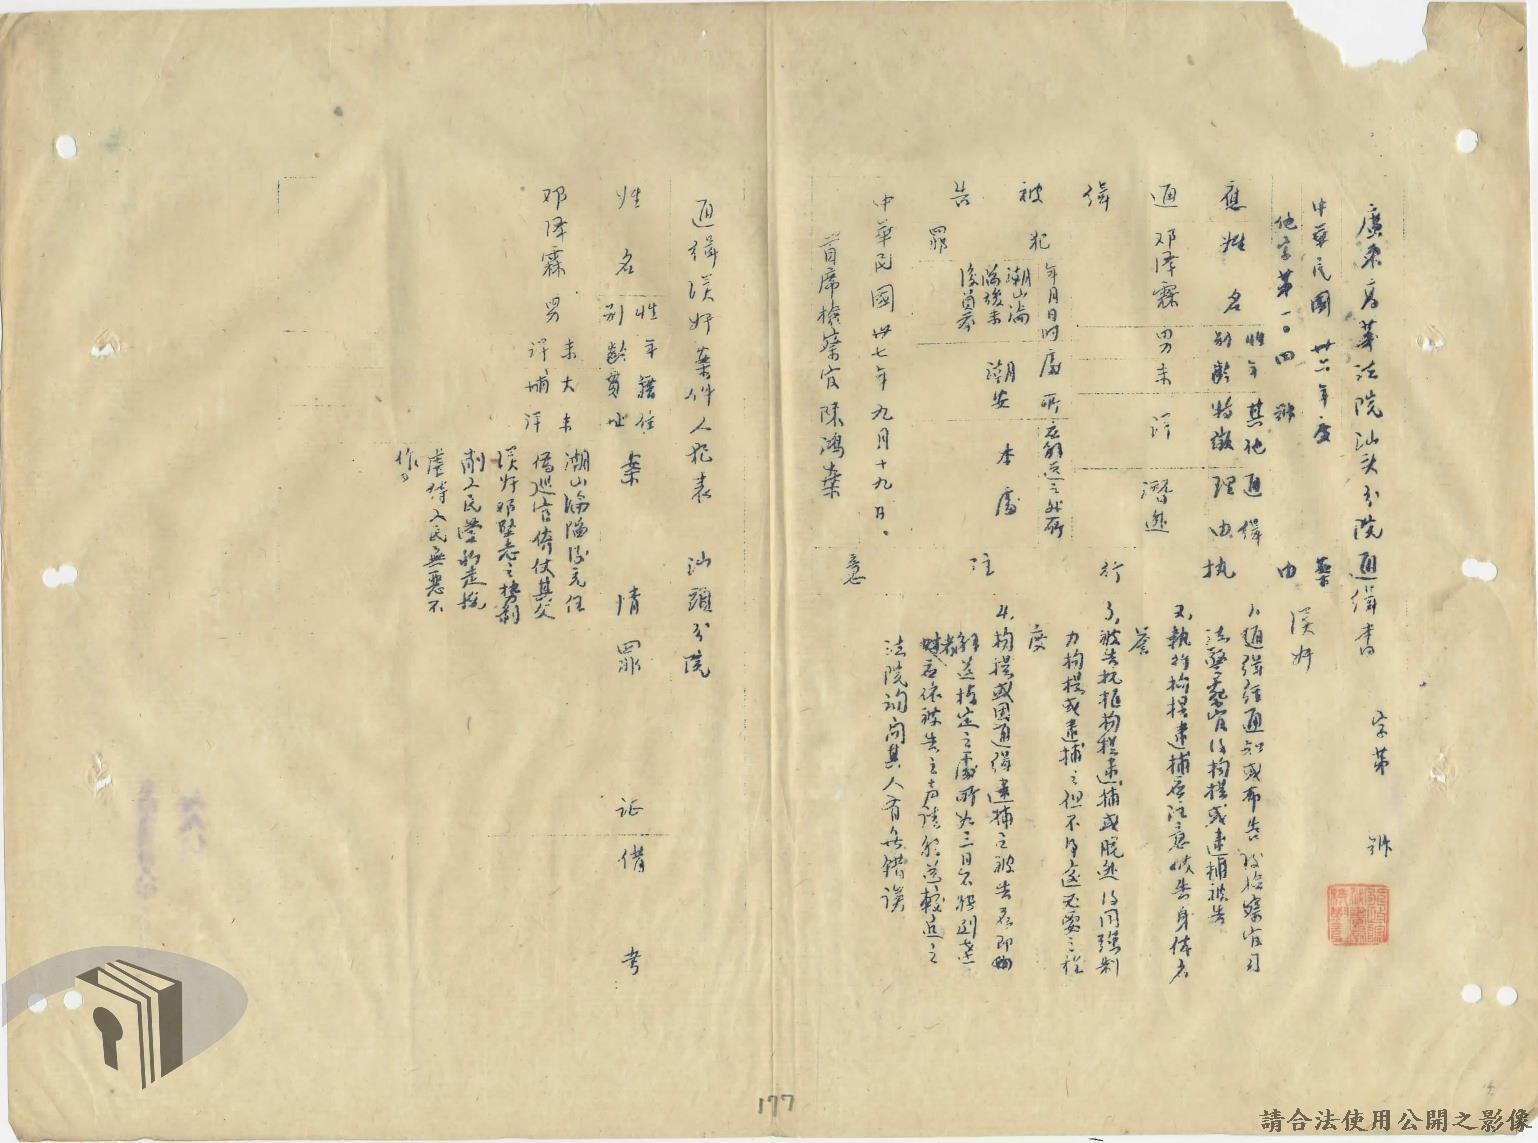 廣東高等法院汕頭分院通緝書　字第　號
中華民國卅六年度
他字第一〇四號
案由　漢奸
應　姓名　性別　年齡　其他特徵　通緝理由
通　邓泽霖　男　未詳　潛逃
緝
被　犯　年月日時　處所　應解送之処所
告　罪　潮汕淪陷後未復員前　潮安　本處
執行注意
1、通緝經通知或布告後檢察官司
法警察官得拘提或逮捕被告
2、執行拘提逮捕應注意被告身体名
譽
3、被告抗拒拘提逮捕或脫逃得用強制
力拘提或逮捕之但不得逾必要之程
度
4、拘提或因通緝逮捕之被告應即
解送指定之處所如三日不能到達
者應依被告之声請解送較近之
法院詢問其人有無錯誤
中華民國卅七年九月十九日。
首席檢察官陳鴻藥
通緝漢奸案件人犯表　汕頭分院
姓名　性別　年齡　籍貫　住址　案情　罪証　備考
邓泽霖　男　未詳　大埔　未详
潮汕淪陷後充任
偽巡官倚仗其父
漢奸邓堅志之勢剝
削人民營私走挽
虐待人民無惡不
作。
177
請合法使用公開之影像